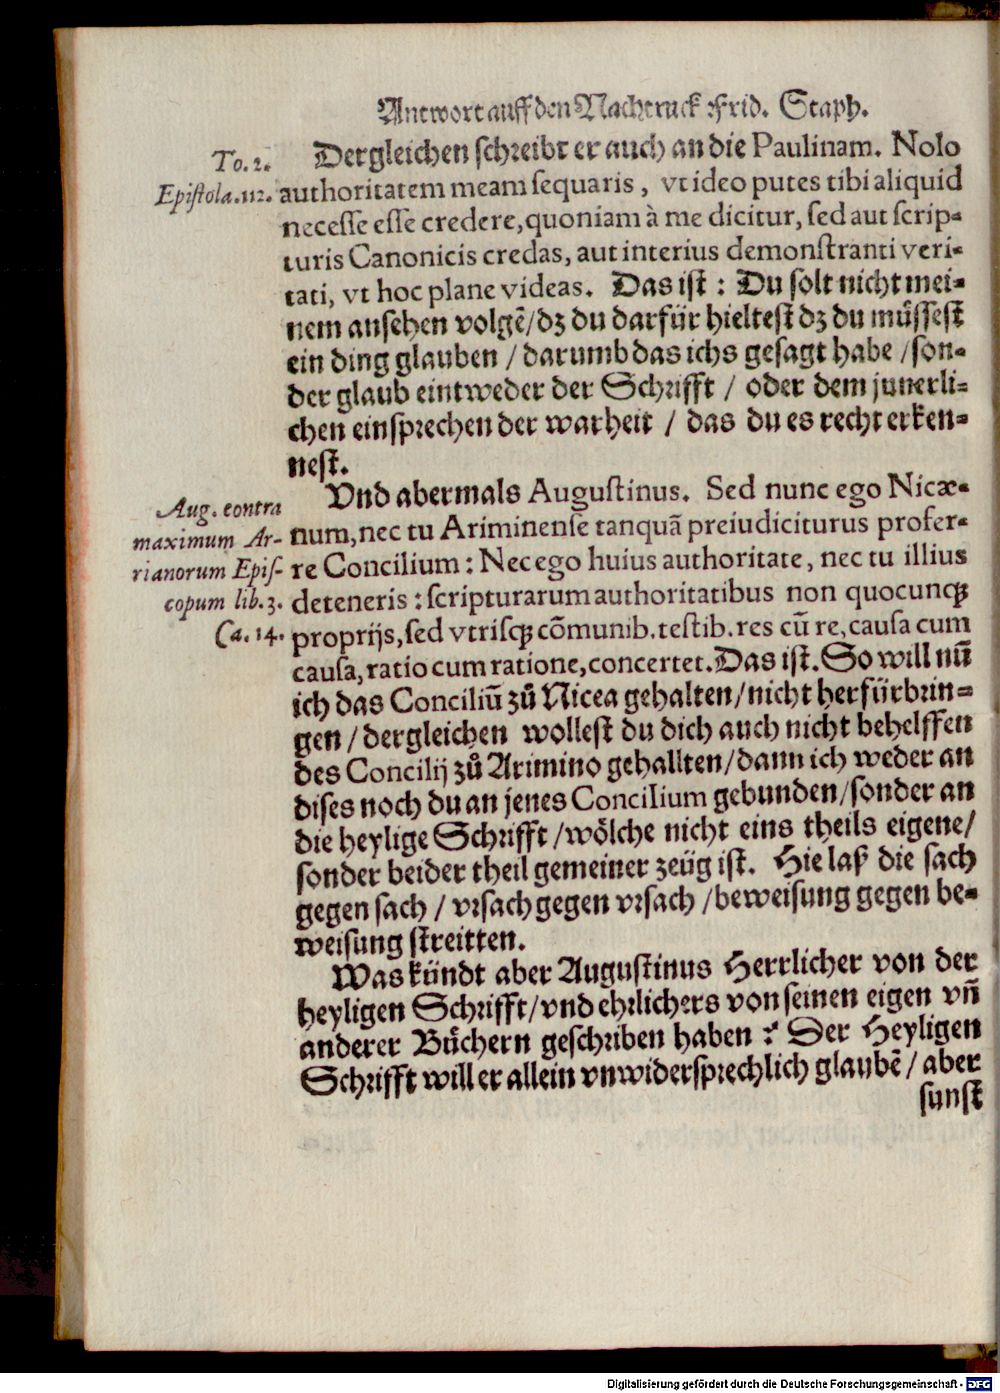 Antwort auff den Nachtruck Frid. Staph.
To. 2.
Epistola. 112.
Dergleichen schreibt er auch an die Paulinam. Nolo
authoritatem meam sequaris, vt ideo putes tibi aliquid
necesse esse credere, quoniam à me dicitur, sed aut scrip-
turis Canonicis credas, aut interius demonstranti veri-
tati, vt hoc plane videas. Das ist: Du solt nicht mei-
nem ansehen volgẽ/dz du darfür hieltest dz du müssest
ein ding glauben / darumb das ichs gesagt habe /son-
der glaub eintweder der Schrifft / oder dem junerli-
chen einsprechen der warheit / das du es recht erken-
nest.
Aug. contra
maximum Ar-
rianorum Epis-
copum lib. 3.
Ca. 14.
Vnd abermals Augustinus. Sed nunc ego Nicæ-
num, nec tu Ariminense tanquã preiudiciturus profer-
re Concilium: Nec ego huius authoritate, nec tu illius
deteneris: scripturarum authoritatibus non quocunqꝫ
proprijs, sed vtrisqꝫ cõmunib. testib. res cũ re, causa cum
causa, ratio cum ratione, concertet. Das ist. So will nũ
ich das Conciliũ zů Nicea gehalten/nicht herfürbrin-
gen / dergleichen wollest du dich auch nicht behelffen
des Concilij zů Arimino gehallten/dann ich weder an
dises noch du an jenes Concilium gebunden/sonder an
die heylige Schrifft /wölche nicht eins theils eigene/
sonder beider theil gemeiner zeüg ist. Hie laß die sach
gegen sach / vrsach gegen vrsach /beweisung gegen be-
weisung streitten.
Was kündt aber Augustinus Herrlicher von der
heyligen Schrifft/vnd ehrlichers von seinen eigen vñ
anderer Büchern geschriben haben? Der Heyligen
Schrifft will er allein vnwidersprechlich glaubẽ/ aber
sunst
Digitalisierung gefördert durch die Deutsche Forschungsgemeinschaft - DFG